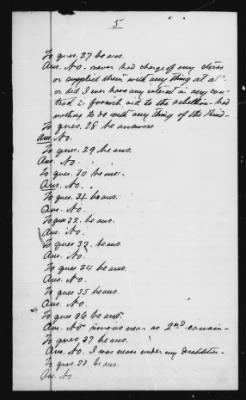 5
To ques. 27 he ans.
Ans. No. never had charge of any stores
or supplied them with any thing at all
or did I ever have any interest in any con-
tract to furnish aid to the rebellion. had
nothing to do with any thing of the kind.
To ques. 28 he answers
Ans. No.
To ques. 29 he ans.
Ans. No.
To ques 30 he ans.
Ans. No.
To ques 31 he ans.
Ans. No.
To ques 32. he ans.
Ans. No.
To ques 33. he ans
Ans. No.
To ques 34 he ans.
Ans. No.
To ques 35 he ans.
Ans. No.
To ques 36 he ans.
Ans. No as 2nd
To ques. 37 he ans.
Ans. No. I was never under any disabilities.
To ques. 38 he ans.
Ans. No